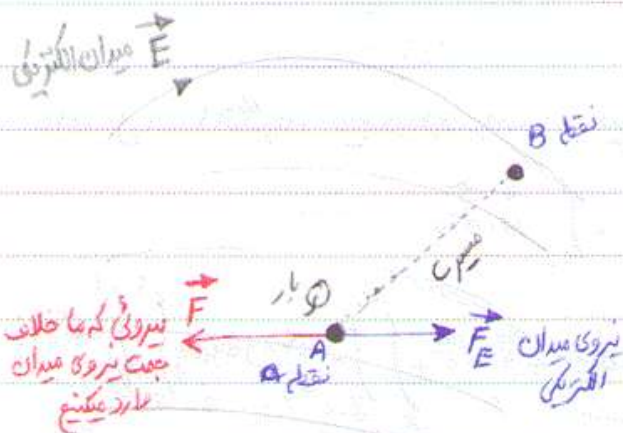 میدان الکتریکی E
نقطه B
مسیر
بار Q
F
نیروئی که ما خلاف
جهت نیروی میدان
وارد میکنیم
A
نقطه A
F_E
نیروی میدان
الکتریکی